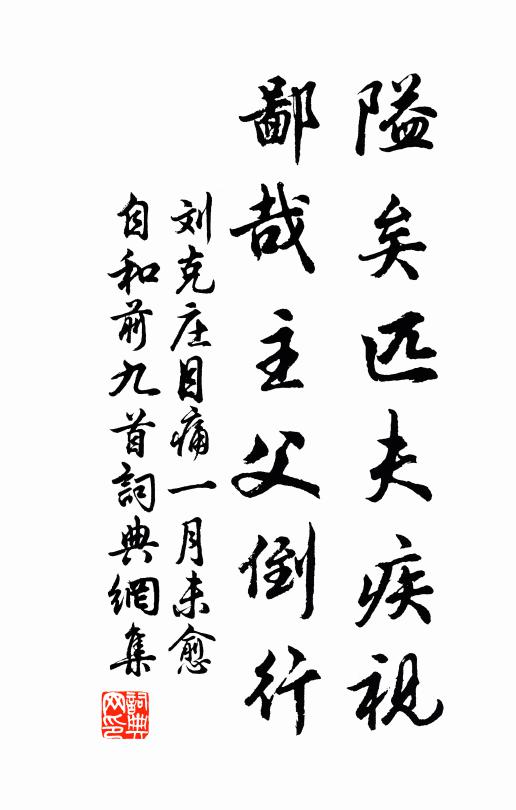 隘矣匹夫疾视
鄙哉主父倒行
刘克庄目痛一月未愈
自和前九首詞典網集
詞典网印